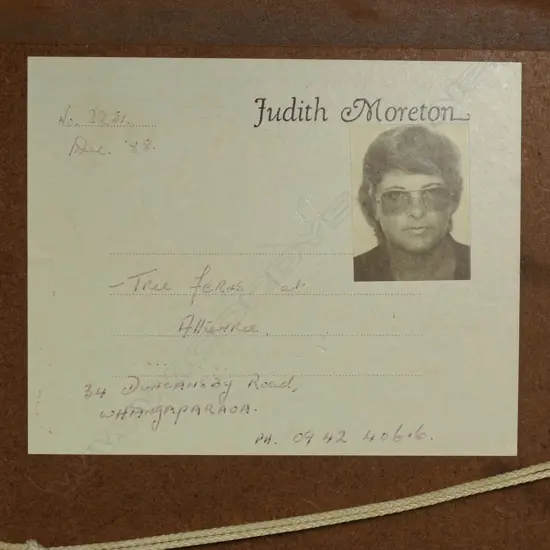 Judith Moreton
No. 2231.
Dec. '88.
- Tree Ferns at
34 Duncansby Road,
Whangaparaoa.
PH. 09 42 4066.